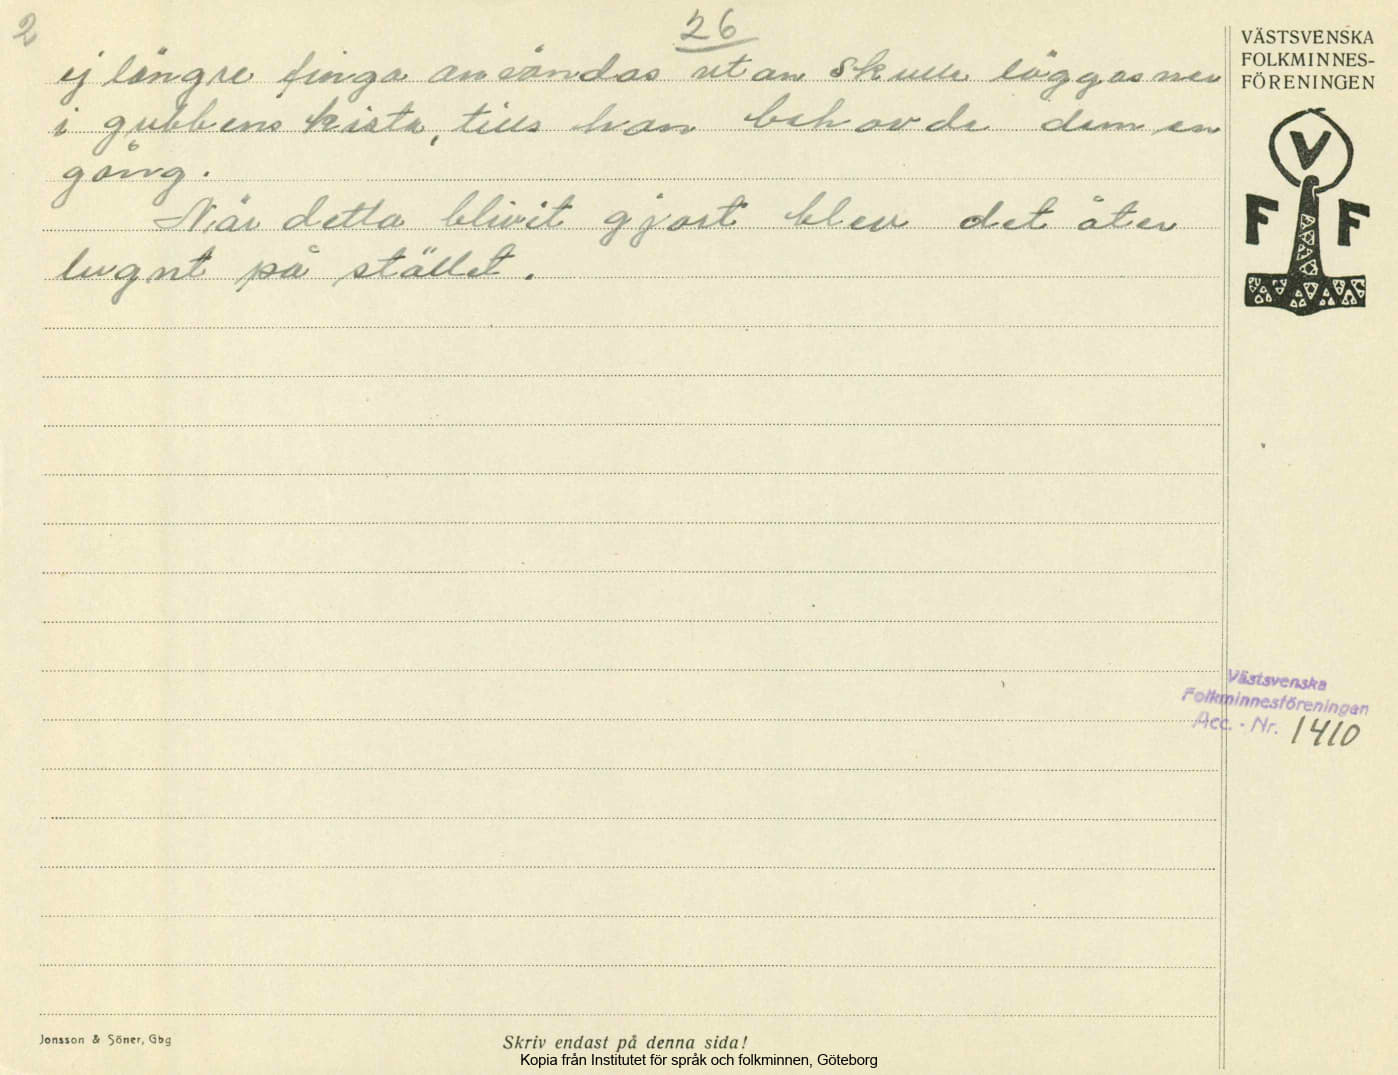 2
26
ej längre finga användas utan skulle läggas ner
i gubbens kista, tills han behovde dem en
gång.
När detta blivit gjort blev det åter
lugnt på stället.
VÄSTSVENSKA
FOLKMINNES-
FÖRENINGEN
V
F F
Västsvenska
Folkminnesföreningen
Acc. - Nr. 1410
Jonsson & Söner, Gbg
Skriv endast på denna sida!
Kopia från Institutet för språk och folkminnen, Göteborg